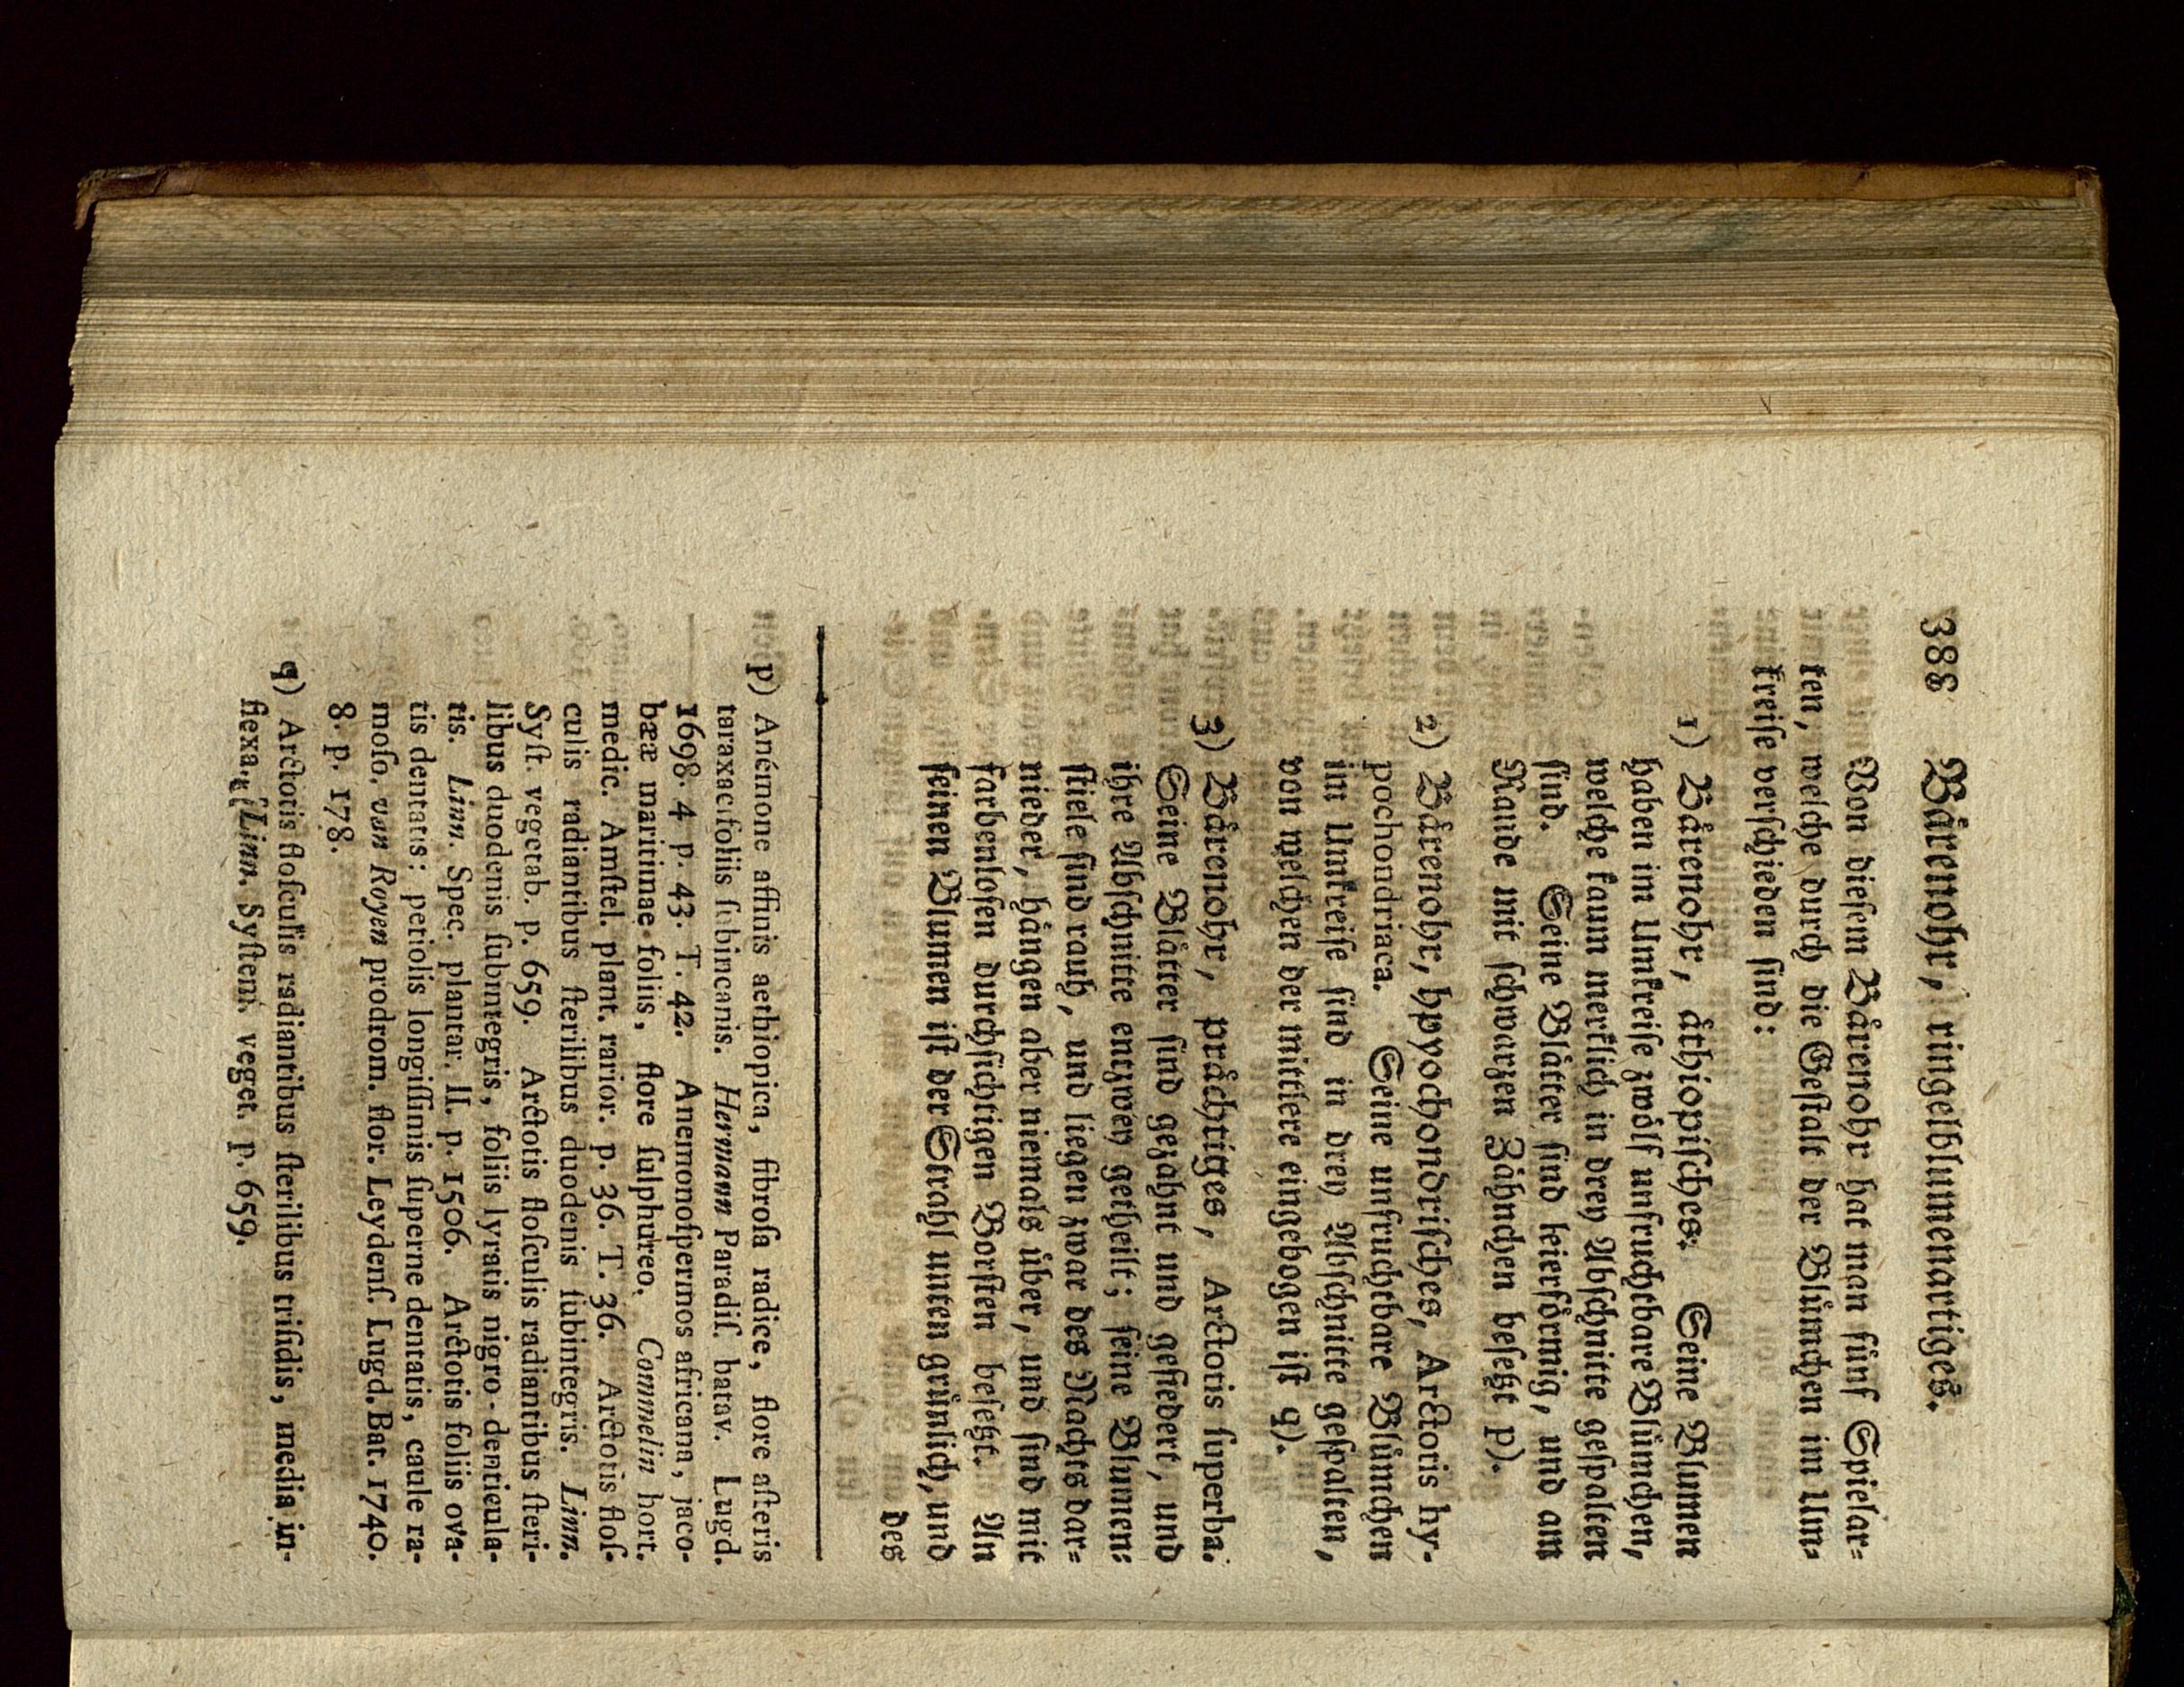 388 Bärenohr, ringelblumenartiges.
Von diesem Bärenohr hat man fünf Spielar-
ten, welche durch die Gestalt der Blümchen im Um-
kreise verschieden sind:
1) Bärenohr, äthiopisches. Seine Blumen
haben im Umkreise zwölf unfruchtbare Blümchen,
welche kaum merklich in drey Abschnitte gespalten
sind. Seine Blätter sind leierförmig, und am
Rande mit schwarzen Zähnchen besetzt p).
2) Bärenohr, hypochondrisches, Arctotis hy-
pochondriaca. Seine unfruchtbare Blümchen
im Umkreise sind in drey Abschnitte gespalten,
von welchen der mittlere eingebogen ist q).
3) Bärenohr, prächtiges, Arctotis ſuperba.
Seine Blätter sind gezahnt und gefiedert, und
ihre Abschnitte entzwey getheilt; seine Blumen-
stiele sind rauh, und liegen zwar des Nachts dar-
nieder, hängen aber niemals über, und sind mit
farbenlosen durchsichtigen Borsten besetzt. An
seinen Blumen ist der Strahl unten grünlich, und
des
p) Anémone affinis aethiopica, fibroſa radice, flore aſteris
taraxaci foliis ſubincanis. Hermann Paradiſ. batav. Lugd.
1698. 4 p. 43. T. 42. Anemonoſpermos africana, jaco-
bææ maritimae foliis, flore ſulphureo. Commelin hort.
medic. Amſtel. plant. rarior. p. 36. T. 36. Arctotis floſ-
culis radiantibus ſterilibus duodenis ſubintegris. Linn.
Syſt. vegetab. p. 659. Arctotis floſculis radiantibus ſteri-
libus duodenis ſubintegris, foliis lyratis nigro-denticula-
tis. Linn. Spec. plantar. II. p. 1506. Arctotis foliis ova-
tis dentatis: petiolis longiſſimis ſuperne dentatis, caule ra-
moſo. van Royen prodrom. flor. Leydenſ. Lugd. Bat. 1740.
8. p. 178.
q) Arctotis floſculis radiantibus ſterilibus trifidis, media in-
flexa. Linn. Syſtem. veget. p. 659.